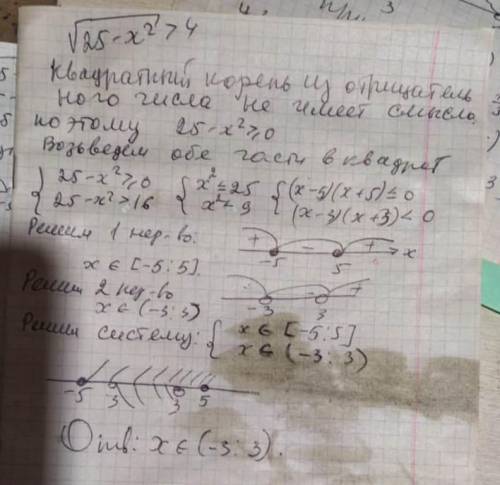 √25-x² > 4
Квадратный корень из отрицатель
ного числа не имеет смысла,
поэтому 25-x² ≥ 0
Возьведем обе части в квадрат
{ 25-x² ≥ 0 { x² ≤ 25 { (x-5)(x+5) ≤ 0
{ 25-x² > 16 { x² < 9 { (x-3)(x+3) < 0
Решим 1 нер-во: + - +
-5 5 x
x ∈ [-5; 5].
Решим 2 нер-во - +
-3 3
x ∈ (-3; 3)
Решим систему: { x ∈ [-5; 5]
{ x ∈ (-3; 3)
-5 -3 3 5
Отв: x ∈ (-3; 3).